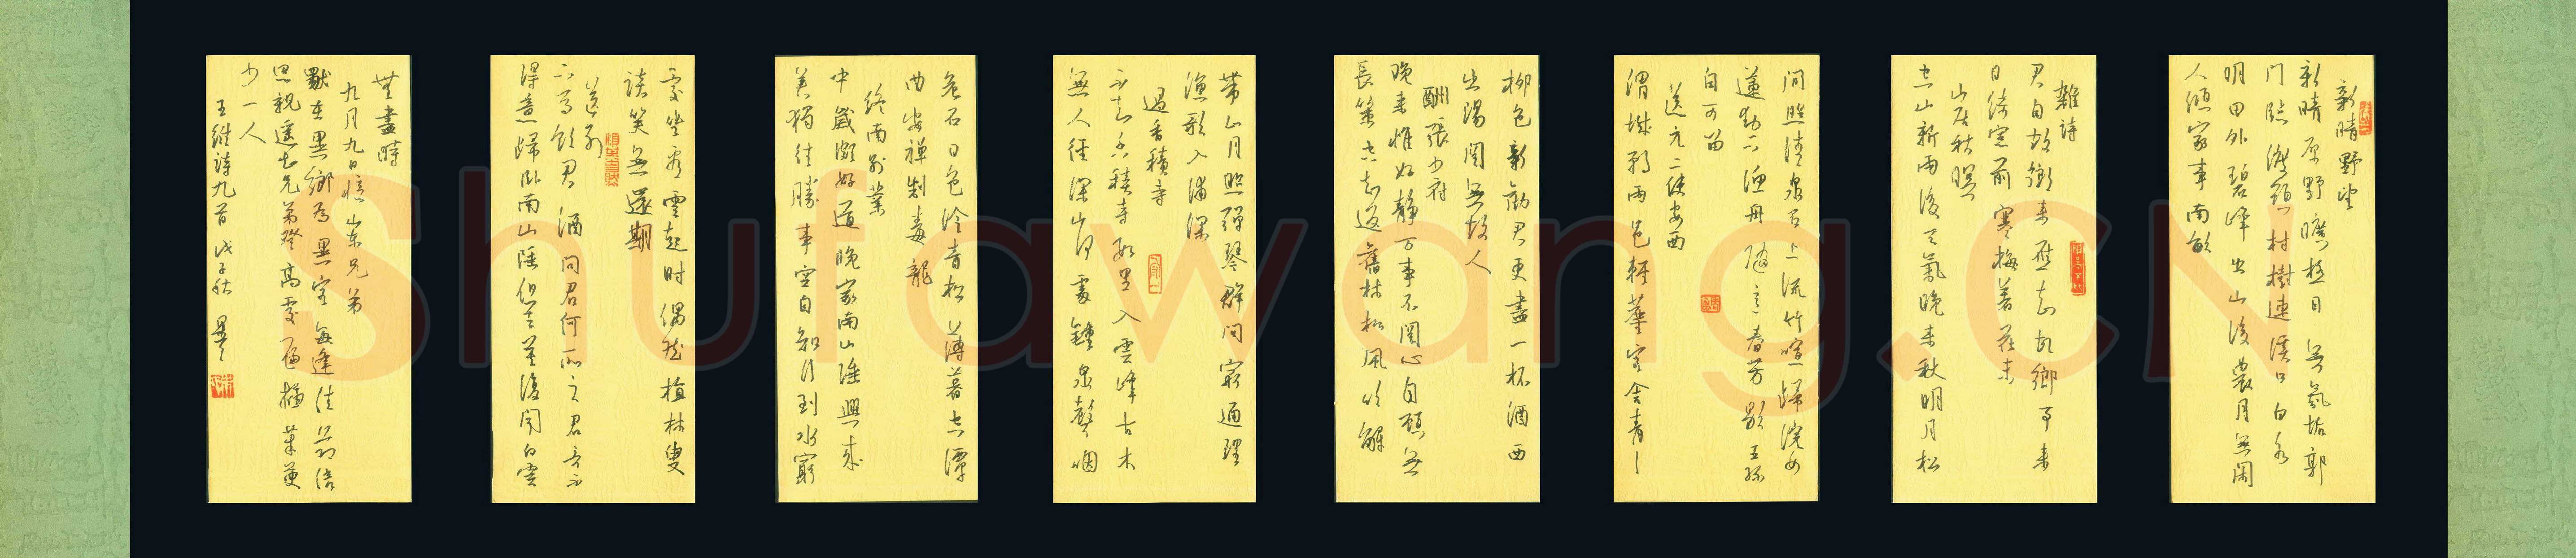 新晴野望
新晴原野曠極目無氛垢郭
門臨渡頭村樹連溪口白水
明田外碧峰出山後農月無閑
人傾家事南畝
雜詩
君自故鄉來應知故鄉事來
日綺窗前寒梅著花未
山居秋暝
空山新雨後天氣晚來秋明月松
間照清泉石上流竹喧歸浣女
蓮動下漁舟隨意春芳歇王孫
自可留
送元二使安西
渭城朝雨邑輕塵客舍青々
柳色新勸君更盡一杯酒西
出陽關無故人
酬張少府
晚來惟好靜万事不關心自顧無
長策空知返舊林松風吹解
帶山月照彈琴君問窮通理
漁歌入浦深
過香積寺
不知香積寺數里入雲峰古木
無人徑深山何處鐘泉聲咽
危石日色冷青松薄暮空潭
曲安禪制毒龍
終南別業
中歲頗好道晚家南山陲興來
美獨往勝事空自知行到水窮
處坐看雲起时偶然植林叟
談笑無還期
送別
下馬飲君酒問君何所之君言不
得意歸臥南山陲但去莫復問白雲
無盡時
九月九日憶山东兄弟
獨在異鄉為異客每逢佳節倍
思親遙知兄弟登高處遍插茱萸
少一人
王維詩九首戊子秋
Shufawang.CN